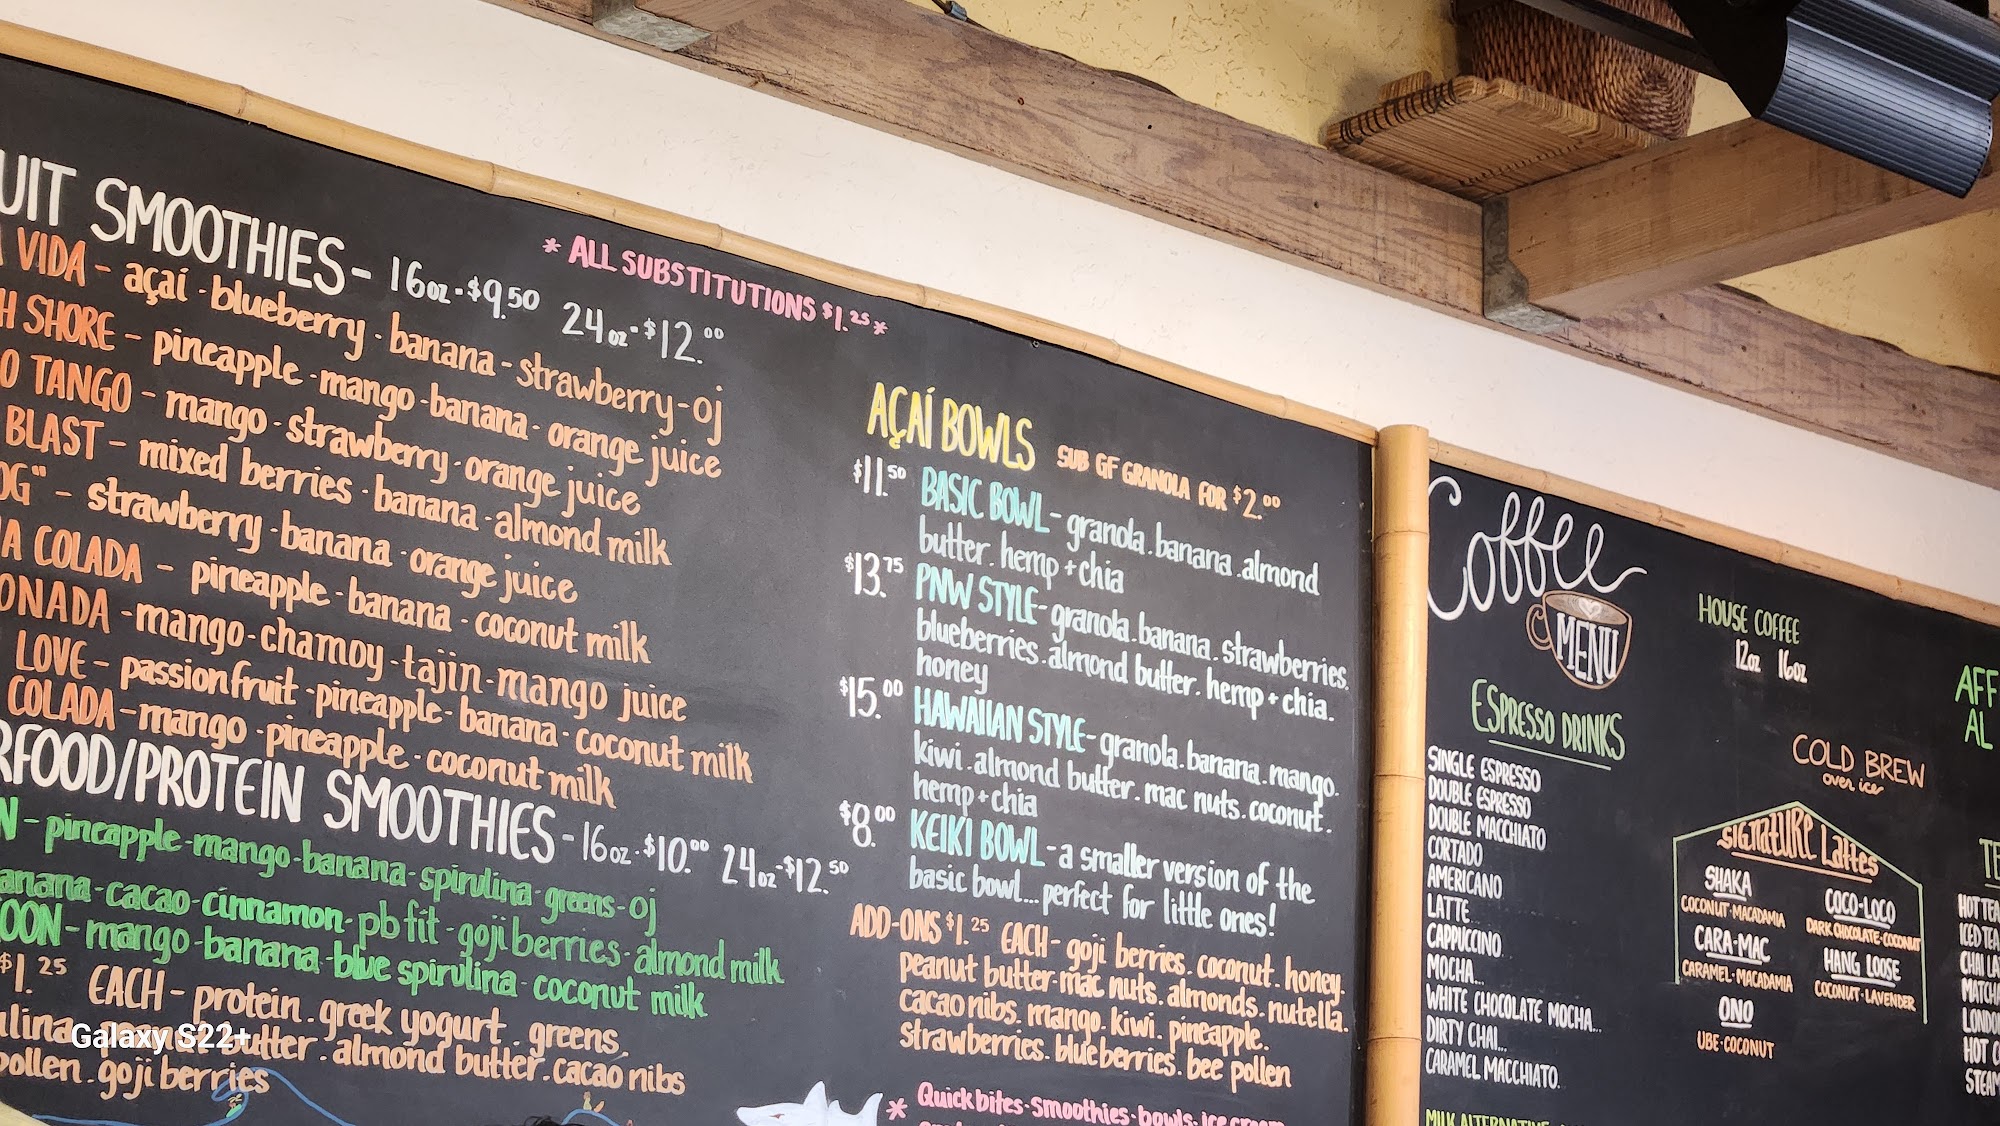 UIT SMOOTHIES - 16oz - $9.50 24oz - $12.00
* ALL SUBSTITUTIONS $1.25 *
VIDA - açaí - blueberry - banana - strawberry - oj
H SHORE - pineapple - mango - banana - orange juice
O TANGO - mango - strawberry - orange juice
BLAST - mixed berries - banana - almond milk
OG" - strawberry - banana - orange juice
A COLADA - pineapple - banana - coconut milk
ONADA - mango - chamoy - tajin - mango juice
LOVE - passionfruit - pineapple - banana - coconut milk
COLADA - mango - pineapple - coconut milk
RFOOD/PROTEIN SMOOTHIES - 16oz - $10.00 24oz - $12.50
N - pineapple - mango - banana - spirulina - greens - oj
anana - cacao - cinnamon - pb fit - goji berries - almond milk
OON - mango - banana - blue spirulina - coconut milk
$1.25 EACH - protein . greek yogurt . greens
ulina butter . almond butter . cacao nibs
pollen . goji berries
Galaxy S22+
AÇAÍ BOWLS SUB GF GRANOLA FOR $2.00
$11.50 BASIC BOWL - granola . banana . almond
butter . hemp + chia
$13.75 PNW STYLE - granola . banana . strawberries.
blueberries . almond butter . hemp + chia.
honey
$15.00 HAWAIIAN STYLE - granola . banana . mango.
kiwi . almond butter . mac nuts . coconut.
hemp + chia
$8.00 KEIKI BOWL - a smaller version of the
basic bowl... perfect for little ones!
ADD-ONS $1.25 EACH - goji berries . coconut . honey.
peanut butter . mac nuts . almonds . nutella.
cacao nibs . mango . kiwi . pineapple.
strawberries . blueberries . bee pollen
* Quick bites - smoothies - bowls - ice cream
Coffee
MENU
ESPRESSO DRINKS
SINGLE ESPRESSO
DOUBLE ESPRESSO
DOUBLE MACCHIATO
CORTADO
AMERICANO
LATTE
CAPPUCCINO
MOCHA...
WHITE CHOCOLATE MOCHA...
DIRTY CHAI...
CARAMEL MACCHIATO.
MILK ALTERNATIVE
HOUSE COFFEE
12oz 16oz
COLD BREW
over ice
SIGNATURE Lattes
SHAKA
COCONUT·MACADAMIA
CARA-MAC
CARAMEL·MACADAMIA
ONO
UBE·COCONUT
COCO-LOCO
DARK CHOCOLATE·COCONUT
HANG LOOSE
COCONUT·LAVENDER
AFF
AL
TE
HOT TEA
ICED TEA
CHAI LA
MATCHA
LONDON
HOT C
STEAM